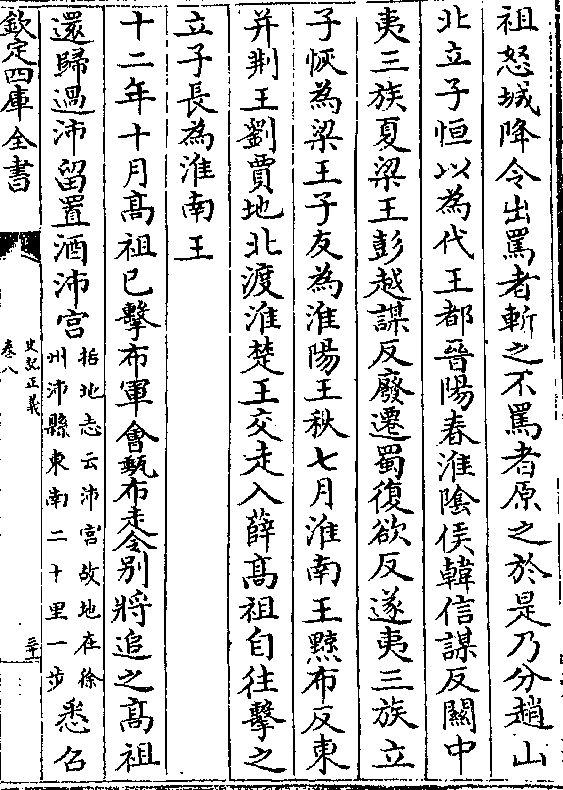 祖怒城降令出罵者斬之不罵者原之於是乃分趙山
北立子恒以為代王都晉陽春淮隂侯韓信謀反關中
夷三族夏梁王彭越謀反廢遷蜀復欲反遂夷三族立
子恢為梁王子友為淮陽王秋七月淮南王黥布反東
并荆王劉賈地北渡淮楚王交走入薛髙祖自往擊之
立子長為淮南王
十二年十月髙祖已擊布軍會甀布走令别將追之髙祖
還歸過沛留置酒沛宫
括地志云沛宫故地在徐
州沛縣東南二十里一步
悉召
欽定四庫全書
史記正義
卷八